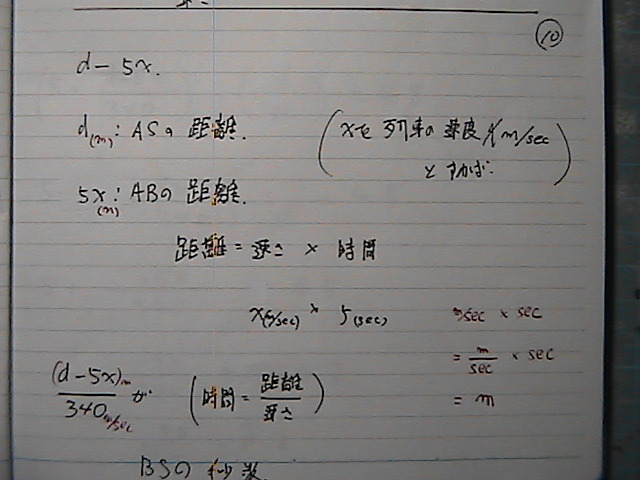 ⑩
d − 5x.
d(m): ASの 距離.
(xを 列車の 速度 x m/sec
とすれば.)
5x(m): ABの 距離.
距離 = 速さ × 時間
x(m/sec) × 5(sec)
m/sec × sec
= m/sec × sec
= m
(d−5x)m / 340m/sec が (時間 = 距離/速さ)
BSの 秒数.